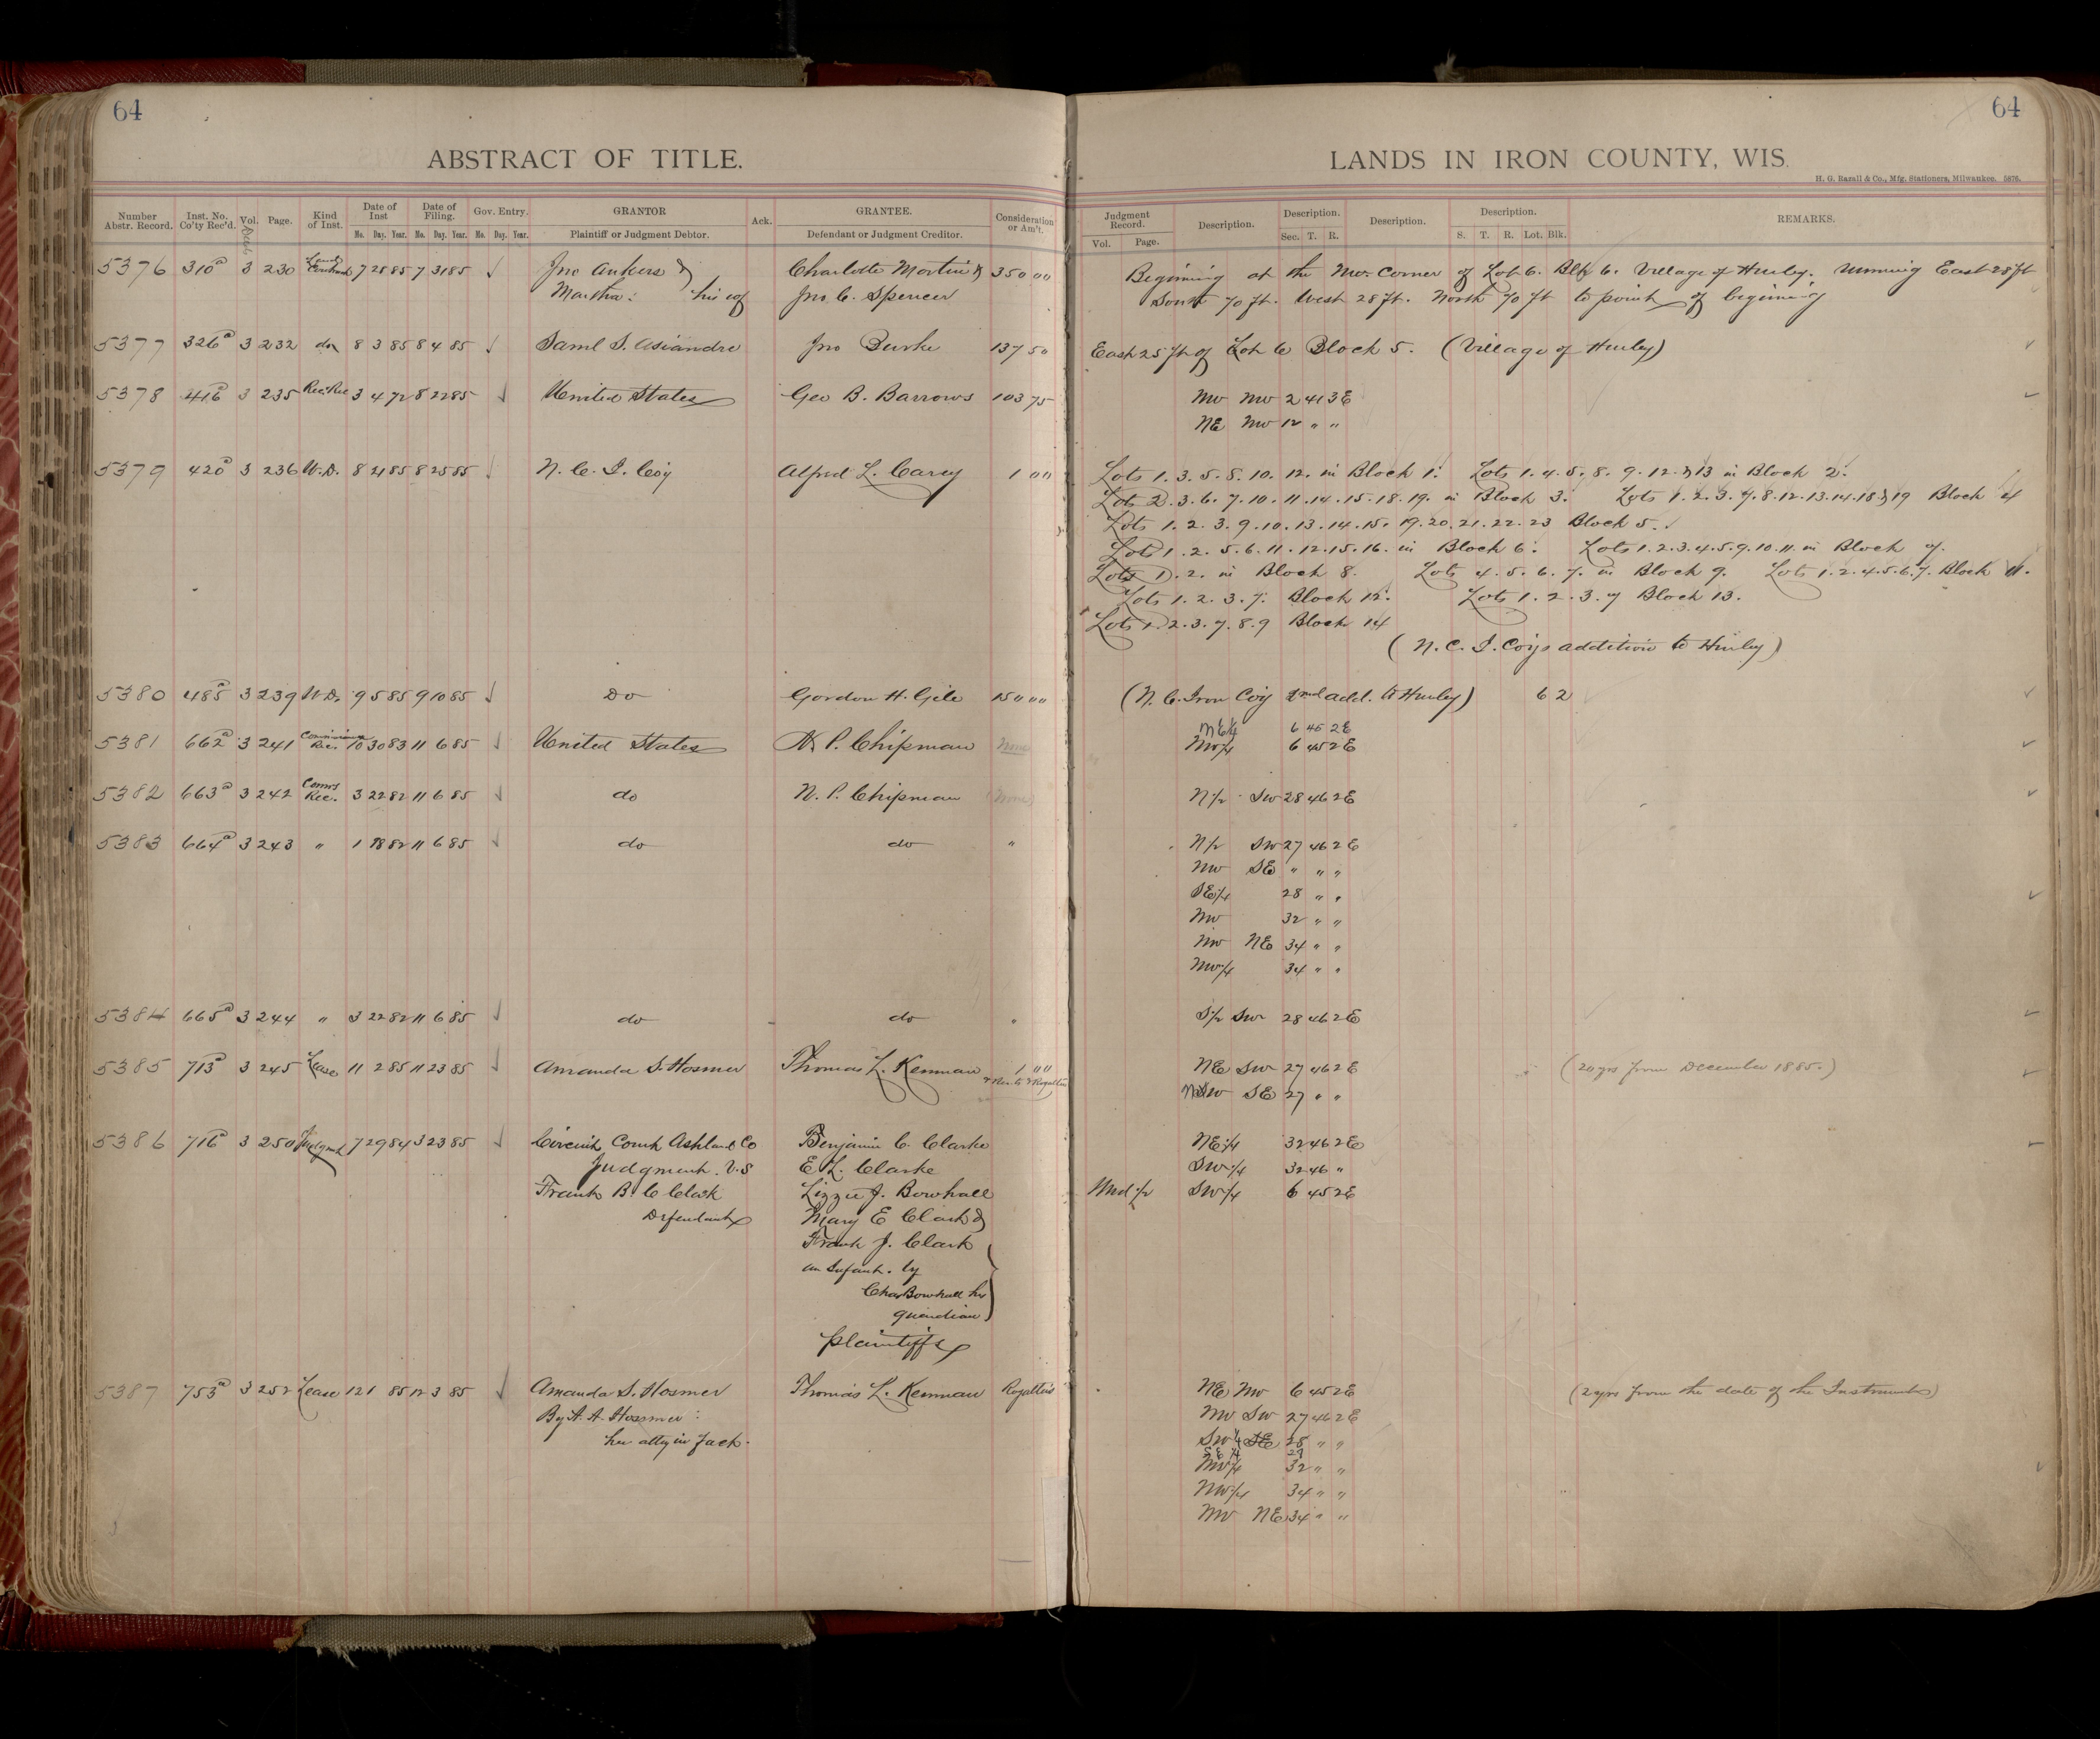 64
ABSTRACT OF TITLE.
Number Abstr. Record. Inst. No. Co'ty Rec'd. Vol. Page. Kind of Inst. Date of Inst Mo. Day. Year. Date of Filing. Mo. Day. Year. Gov. Entry. Mo. Day. Year. GRANTOR Plaintiff or Judgment Debtor. Ack. GRANTEE. Defendant or Judgment Creditor. Consideration or Am't.
5376 310a 3 230 Land Contract 7 28 85 7 31 85 √ Jno Ankers & Charlotte Martin & 350 00
Martha his wf Jno. C. Spencer
5377 326a 3 232 do 8 3 85 8 4 85 √ Saml S. Jno Burke 137 50
5378 416a 3 235 Rec. Rec 3 4 72 8 22 85 √ United States Geo B. Barrows 103 75
5379 420a 3 236 W.D. 8 21 85 8 25 85 √ N. C. I. Coy Alfred L. Carey 1 00
5380 485a 3 239 W.D. 9 5 85 9 10 85 √ Do Gordon H. Gile 150 00
5381 662a 3 241 Rec. 10 30 83 11 6 85 √ United States N. P. Chipman None
5382 663a 3 242 Comrs Rec. 3 22 82 11 6 85 √ do N. P. Chipman (None)
5383 664a 3 243 " 1 18 82 11 6 85 √ do do "
5384 665a 3 244 " 3 22 82 11 6 85 √ do do "
5385 713a 3 245 Lease 11 2 85 11 23 85 √ Amanda S. Hosmer Thomas L. Kennan 1 00
& Rents & Royalties
5386 716a 3 250 Judgmt 7 29 84 3 23 85 √ Circuit Court Ashland Co Benjamin C. Clarke
Judgment. V.S E. L. Clarke
Frank B. C Clark Lizzie J. Bowhall
Defendant Mary E Clark &
Frank J. Clark
an Infant. by
Chas Bowhall her
guardian
plaintiffs
5387 753a 3 252 Lease 12 1 85 12 3 85 √ Amanda S. Hosmer Thomas L. Kennan Royalties
By A. A. Hosmer
her atty in fact.
64
LANDS IN IRON COUNTY, WIS.
H. G. Razall & Co., Mfg. Stationers, Milwaukee. 5876.
Judgment Record. Vol. Page. Description. Description. Sec. T. R. Description. Description. S. T. R. Lot. Blk. REMARKS.
Begining at the Nw. Corner of Lot 6. Blk 6. Village of Hurley. running East 28 ft
South 70 ft. West 28 ft. North 70 ft to point of begining
East 25 ft of Lot 6 Block 5. (Village of Hurley)
Nw Nw 2 41 3 E
NE Nw 12 " "
Lots 1. 3. 5. 8. 10. 12. in Block 1. Lots 1. 4. 5. 8. 9. 12. & 13 in Block 2.
Lots 2. 3. 6. 7. 10. 11. 14. 15. 18. 19. in Block 3. Lots 1. 2. 3. 7. 8. 12. 13. 14. 18 & 19 Block 4
Lots 1. 2. 3. 9. 10. 13. 14. 15. 19. 20. 21. 22. 23 Block 5.
Lots 1. 2. 5. 6. 11. 12. 15. 16. in Block 6. Lots 1. 2. 3. 4. 5. 9. 10. 11. in Block 7.
Lots 1. 2. in Block 8. Lots 4. 5. 6. 7. in Block 9. Lots 1. 2. 4. 5. 6. 7. Block 11.
Lots 1. 2. 3. 7. Block 12. Lots 1. 2. 3. 7 Block 13.
Lots 1. 2. 3. 7. 8. 9 Block 14
(N. C. I. Coys addition to Hurley)
(N. C. Iron Coy 2nd add. to Hurley) 6 2
NE¼ 6 45 2E
Nw¼ 6 45 2E
N½ Sw 28 46 2E
N½ Sw 27 46 2E
Nw SE " " "
SE¼ 28 " "
Nw 32 " "
Nw NE 34 " "
Nw¼ 34 " "
S½ Sw 28 46 2E
NE Sw 27 46 2E (20 yrs from December 1885.)
Nw SE 27 " "
NE¼ 32 46 2E
Sw¼ 32 46 "
Und ½ Sw¼ 6 45 2E
NE Nw 6 45 2E (2 yrs from the date of the Instrument)
Nw Sw 27 46 2E
Sw¼ SE 28 " "
SE ¼ 29
Nw¼ 32 " "
Nw¼ 34 " "
Nw NE 34 " "